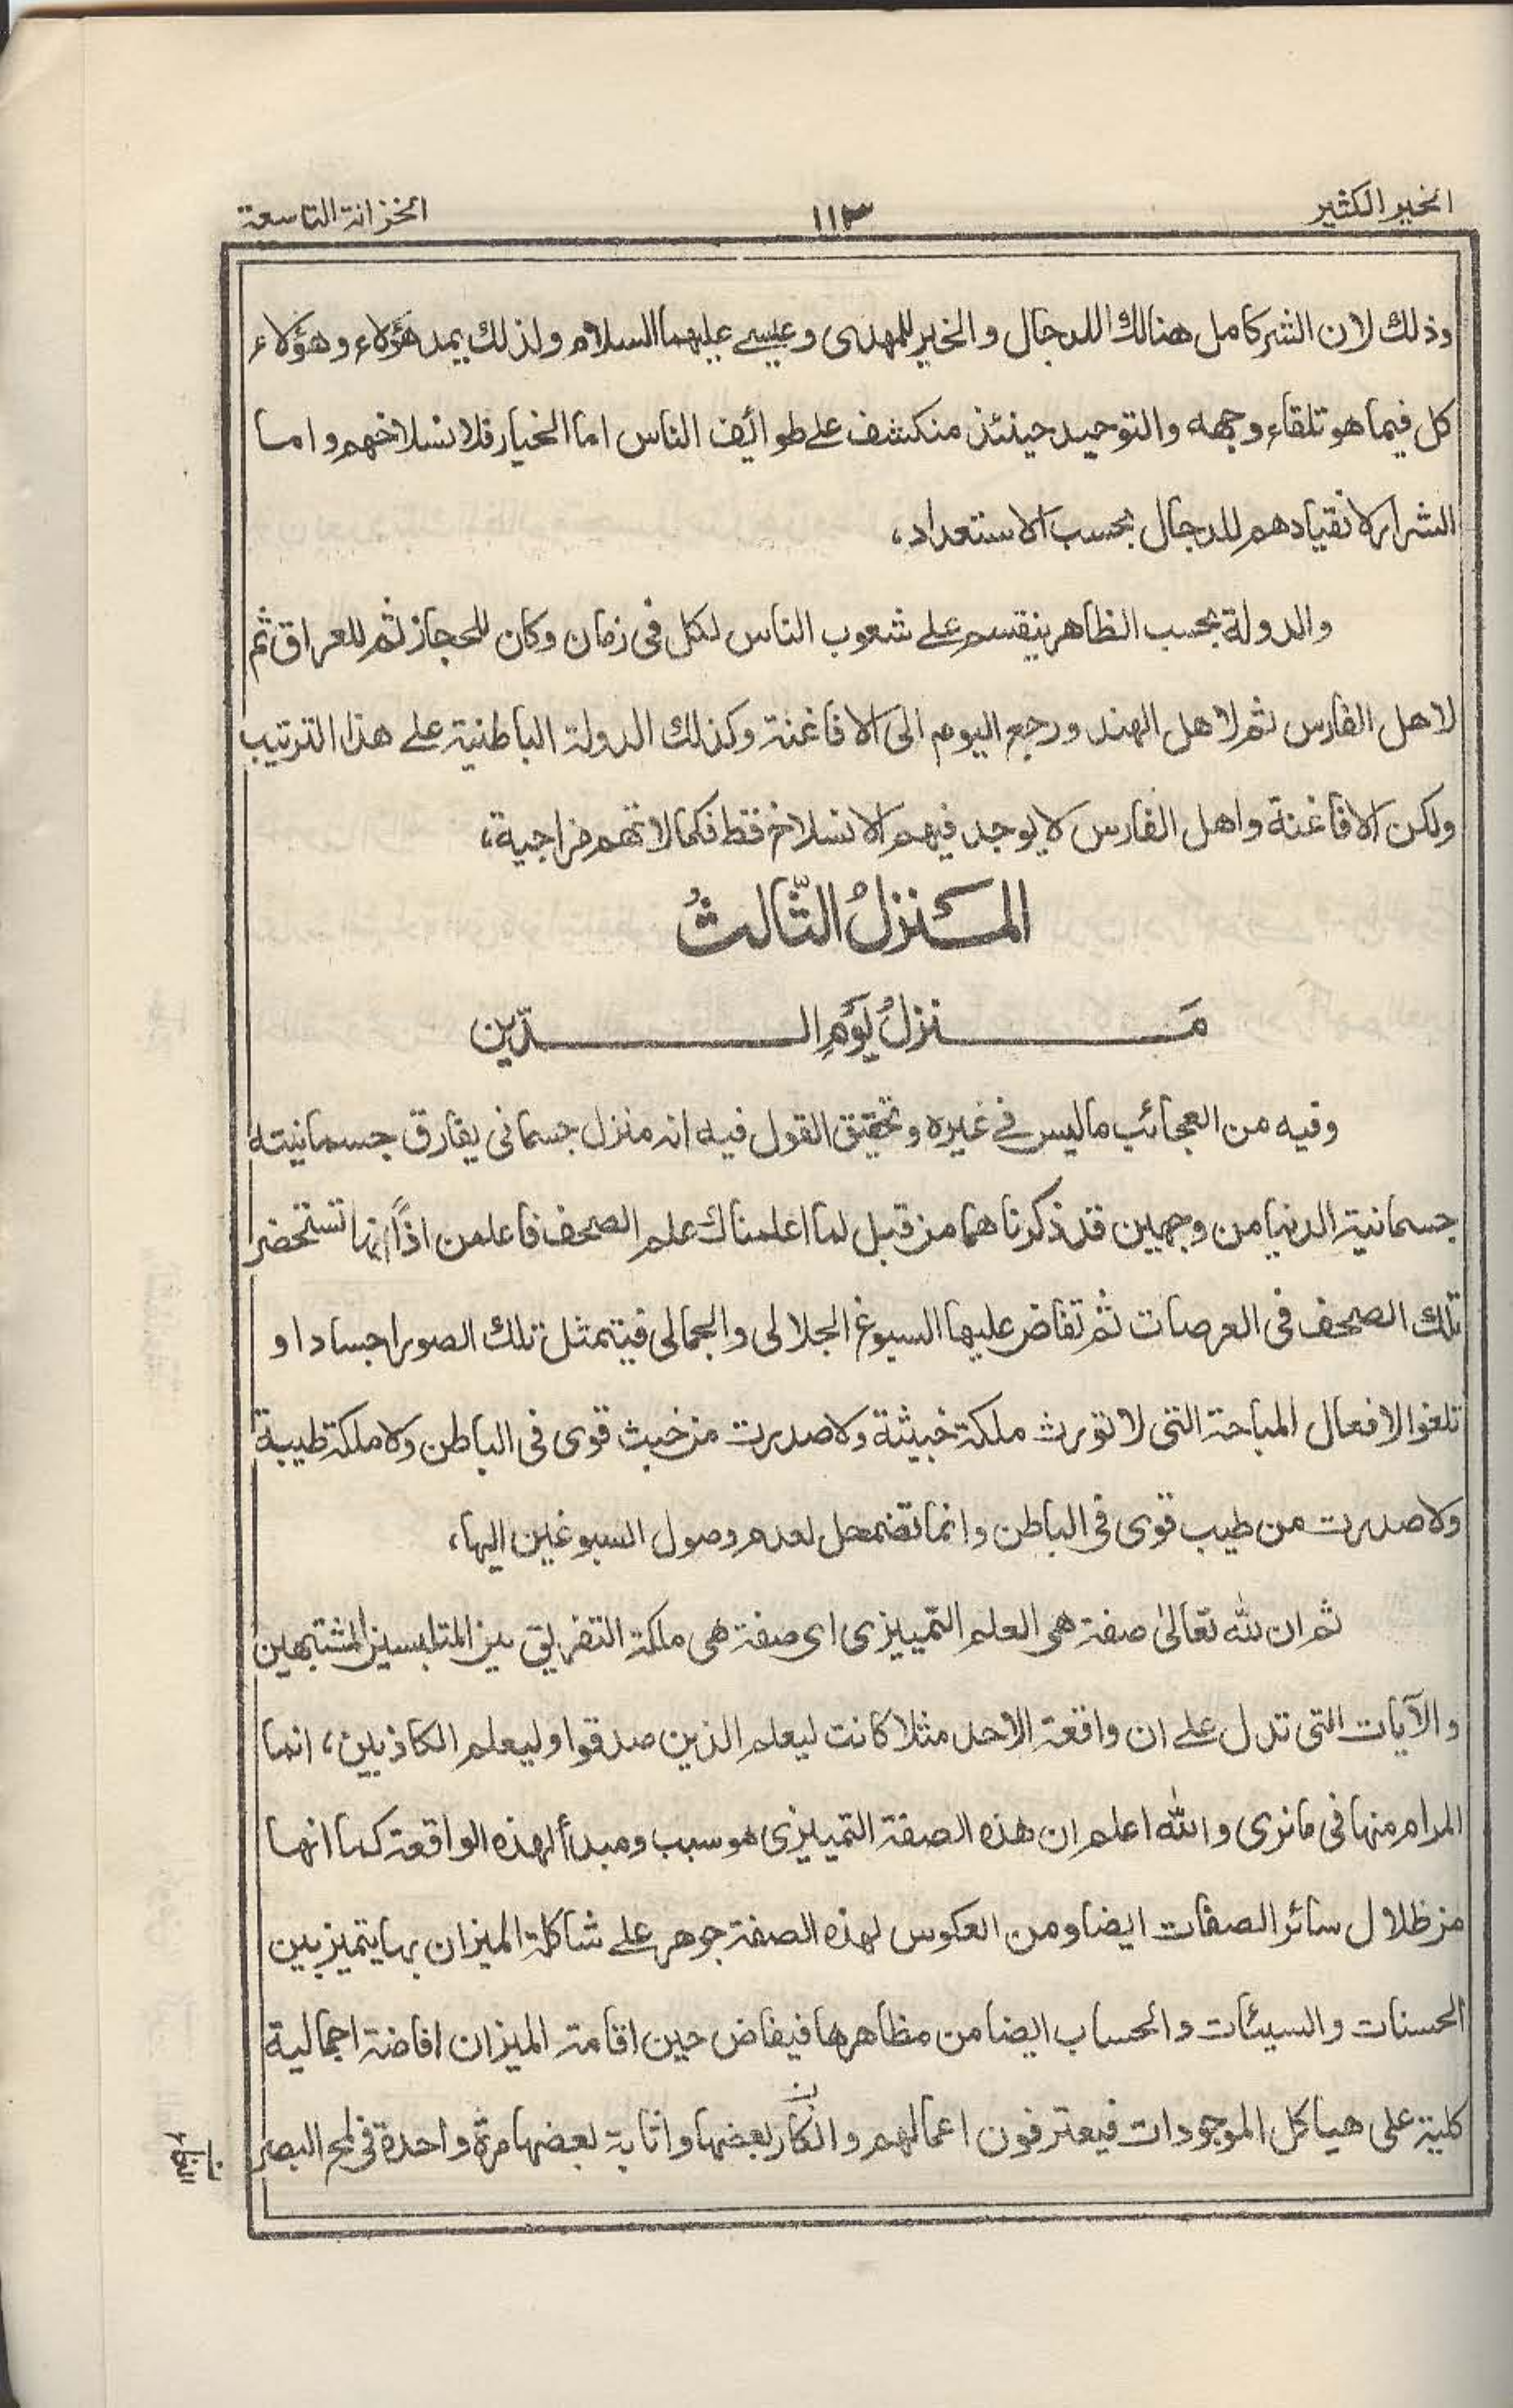 الخير الكثير
١١٣
الخزانة التاسعة
وذلك لان الشر كامل هنالك اللدجال والخير للمهدى وعيسے عليهما السلام ولذلك يمد هؤلاء وهؤلاء
كل فيما هو تلقاء وجهه والتوحيد حينئذ منكشف علے طوائف الناس اما الخيار فلانسلاخهم واما
الشرار لانقيادهم للدجال بحسب الاستعداد،
والدولة بحسب الظاهر ينقسم علے شعوب الناس لكل فى زمان وكان للحجاز ثم للعراق ثم
لاهل الفارس ثم لاهل الهند ورجع اليوم الى الافاغنة وكذلك الدولة الباطنية علے هذا الترتيب
ولكن الافاغنة واهل الفارس لا يوجد فيهم الانسلاخ فقط فكمالاتهم مزاجية،
المَنزلُ الثّالثُ
مَنزلُ يَوَمِ الدّين
وفيه من العجائب ما ليس فے غيره وتحقيق القول فيه انه منزل جسمانى يفارق جسمانيته
جسمانية الدنيا من وجهين قد ذكرناهما من قبل لما اعلمناك علم الصحف فاعلمن اذًا انها تستحضر
تلك الصحف فى العرصات ثم تفاض عليها السبوغ الجلالى والجمالى فيتمثل تلك الصور اجسادا و
تلغوا الافعال المباحة التى لا تورث ملكة خبيثة ولا صدرت من خبث قوى فى الباطن ولا ملكة طيبة
ولا صدرت من طيب قوى فى الباطن وانما تضمحل لعدم وصول السبوغين اليها،
ثم ان لله تعالىٰ صفة هى العلم التّمييزى اى صفة هى ملكة التفريق بين المتلابسين المشتبهين
والآيات التى تدل علے ان واقعة الاحد مثلا كانت ليعلم الذين صدقوا وليعلم الكاذبين، انما
المرام منها فى ما نرى والله اعلم ان هذه الصفة التمييزى هو سبب ومبدأ لهذه الواقعة كما انها
من ظلال سائر الصفات ايضا ومن العكوس لهذه الصفة جوهر علے شاكلة الميزان بها يتميز بين
الحسنات والسيئات والحساب ايضا من مظاهرها فيفاض حين اقامة الميزان افاضة اجمالية
كلية على هياكل الموجودات فيعترفون اعمالهم وانكار بعضها واثابة بعضها مرة واحدة فى لمح البصر